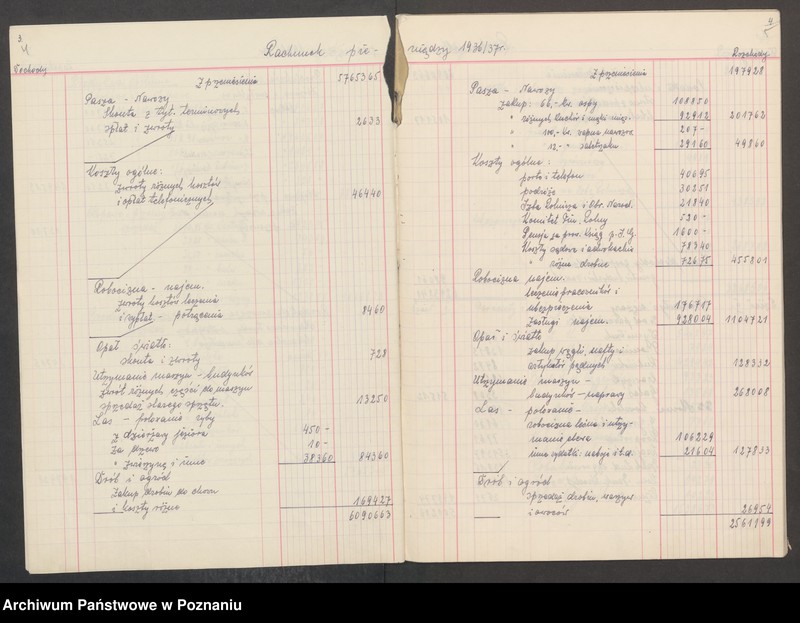 3.
4
Rachunek pie-
Dochody
Z przeniesienia 5765365
Pasza - Nawozy
Skonta z tyt. terminowych
spłat i zwroty 2633
Koszty ogólne:
zwroty różnych kosztów
i opłat telefonicznych 46440
Robocizna - najem.
zwroty kosztów leczenia
i wpłat - potrącenia 8460
Opał Światło:
skonta i zwroty 728
Utrzymanie maszyn - budynków
zwrot różnych części do maszyn
sprzedaż starego sprzętu 13250
Las - polowanie ryby
z dzierżawy jeziora 450 -
Za drzewo 10 -
" zwierzynę i inne 38360 84360
Drób i ogród
Zakup drobiu do chowu
i koszty różne 169427
6090663
4
niężny 1936/37r.
Rozchody
Z przeniesienia 197428
Pasza - Nawozy
zakup: 66,- kw. ospy 108850
" różnych kuchów i mąki mięs. 92912 201762
" 100,- kw. wapna nawozow. 207 -
" 12,- " saletrzaku 29160 49860
Koszty ogólne:
porto i telefon 40695
podróże 30251
Izba Rolnicza i Obr. Narod. 21840
Komitet Fin. Rolny 520 -
Pensja za prow. ksiąg 1600 -
Koszty sądowe i adwokackie 78340
" różne drobne 72675 455801
Robocizna najem.
leczenie pracowników i
ubezpieczenia 176717
Zasługi najem. 928004 1104721
Opał i Światło
zakup węgli, nafty i
artykułów pędnych 128332
Utrzymanie maszyn -
budynków - naprawy 268008
Las - polowanie -
robocizna leśna i utrzy-
manie 106229
inne wydatki: naboje i t.d. 21604 127833
Drób i ogród
sprzedaż drobiu, warzyw
i owoców 26954
2561199
Archiwum Państwowe w Poznaniu